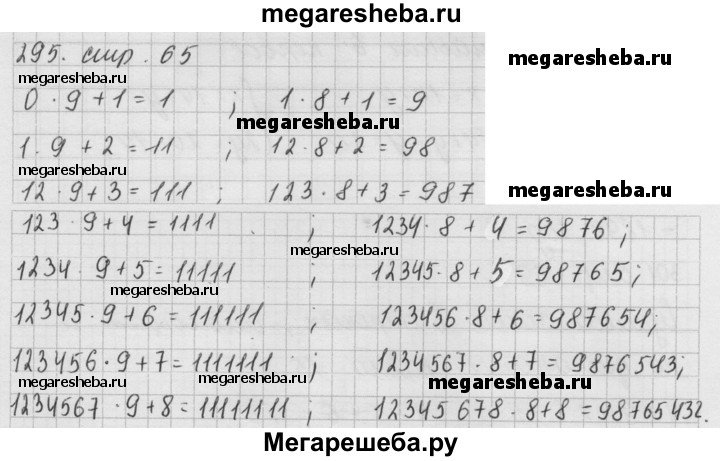 megaresheba.ru
295. стр. 65
megaresheba.ru
megaresheba.ru
0 · 9 + 1 = 1 ; 1 · 8 + 1 = 9
megaresheba.ru
1 · 9 + 2 = 11 ; 12 · 8 + 2 = 98
megaresheba.ru
12 · 9 + 3 = 111 ; 123 · 8 + 3 = 987
megaresheba.ru
123 · 9 + 4 = 1111 ; 1234 · 8 + 4 = 9876 ;
megaresheba.ru
1234 · 9 + 5 = 11111 ; 12345 · 8 + 5 = 98765 ;
megaresheba.ru
12345 · 9 + 6 = 111111 ; 123456 · 8 + 6 = 987654 ;
123456 · 9 + 7 = 1111111 ; 1234567 · 8 + 7 = 9876543 ;
megaresheba.ru megaresheba.ru megaresheba.ru
1234567 · 9 + 8 = 11111111 ; 12345678 · 8 + 8 = 98765432.
Мегарешеба.ру